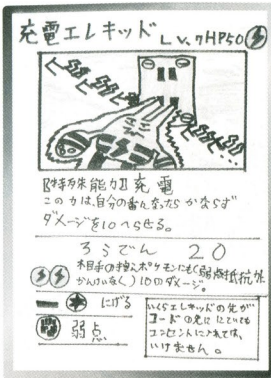 充電エレキッド Lv.7 HP50
〖特殊能力〗充電
この力は、自分の番になったらかならず
ダメージを10へらせる。
ろうでん 20
相手の控えポケモンにも(弱点抵抗力
かんけいなく)10のダメージ。
にげる
弱点
いくらエレキッドの先が
コードの先ににていても
コンセントにとれては、
いけません。